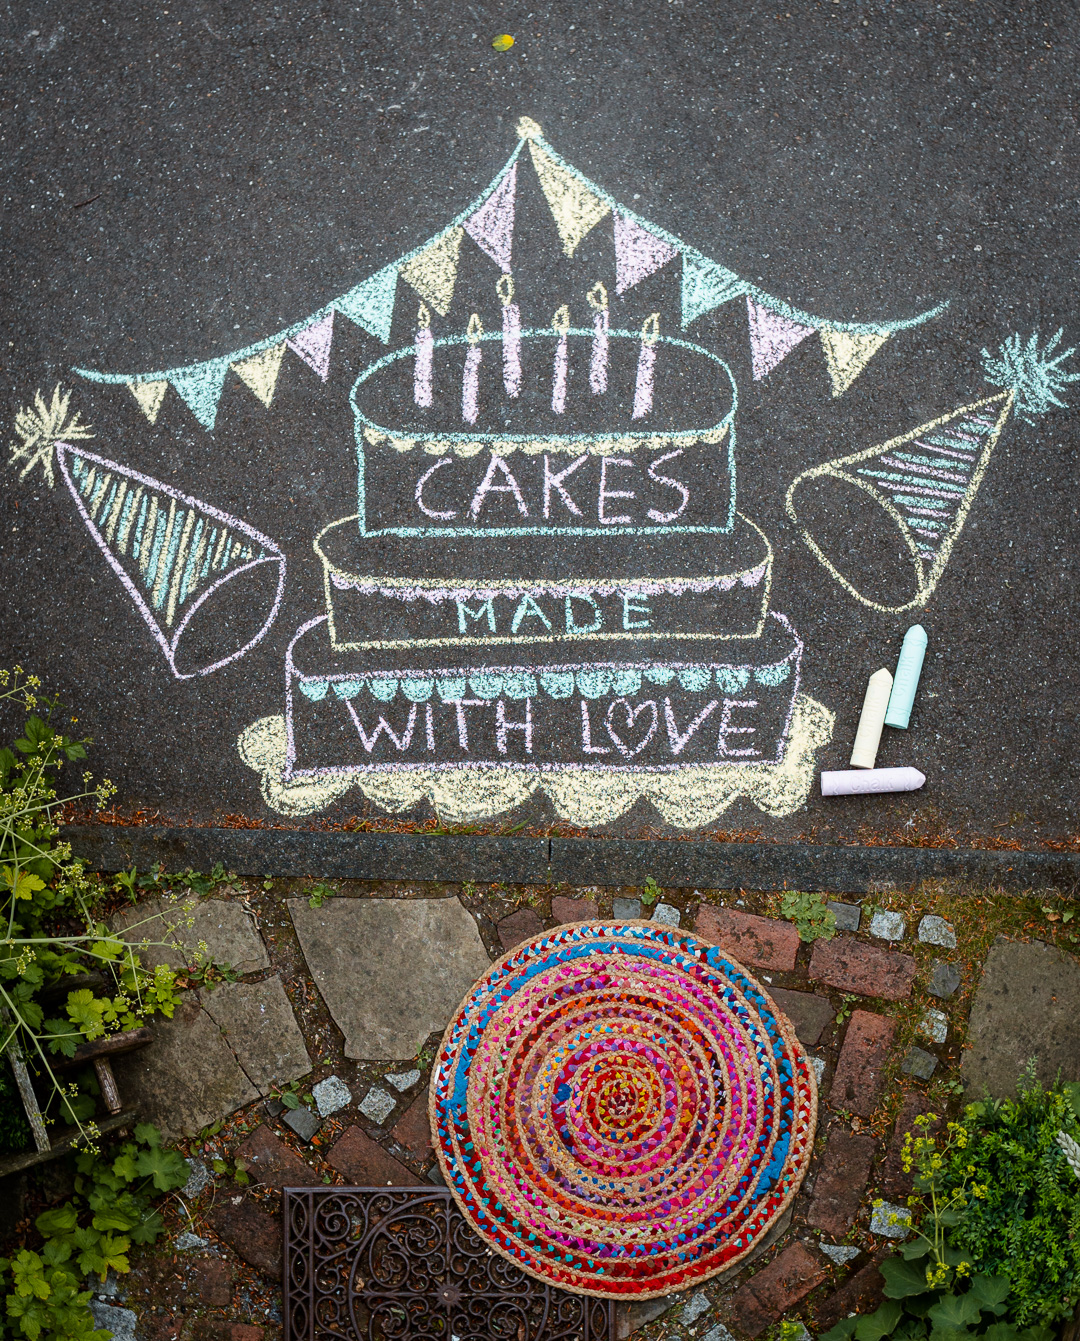 CAKES
MADE
WITH LOVE